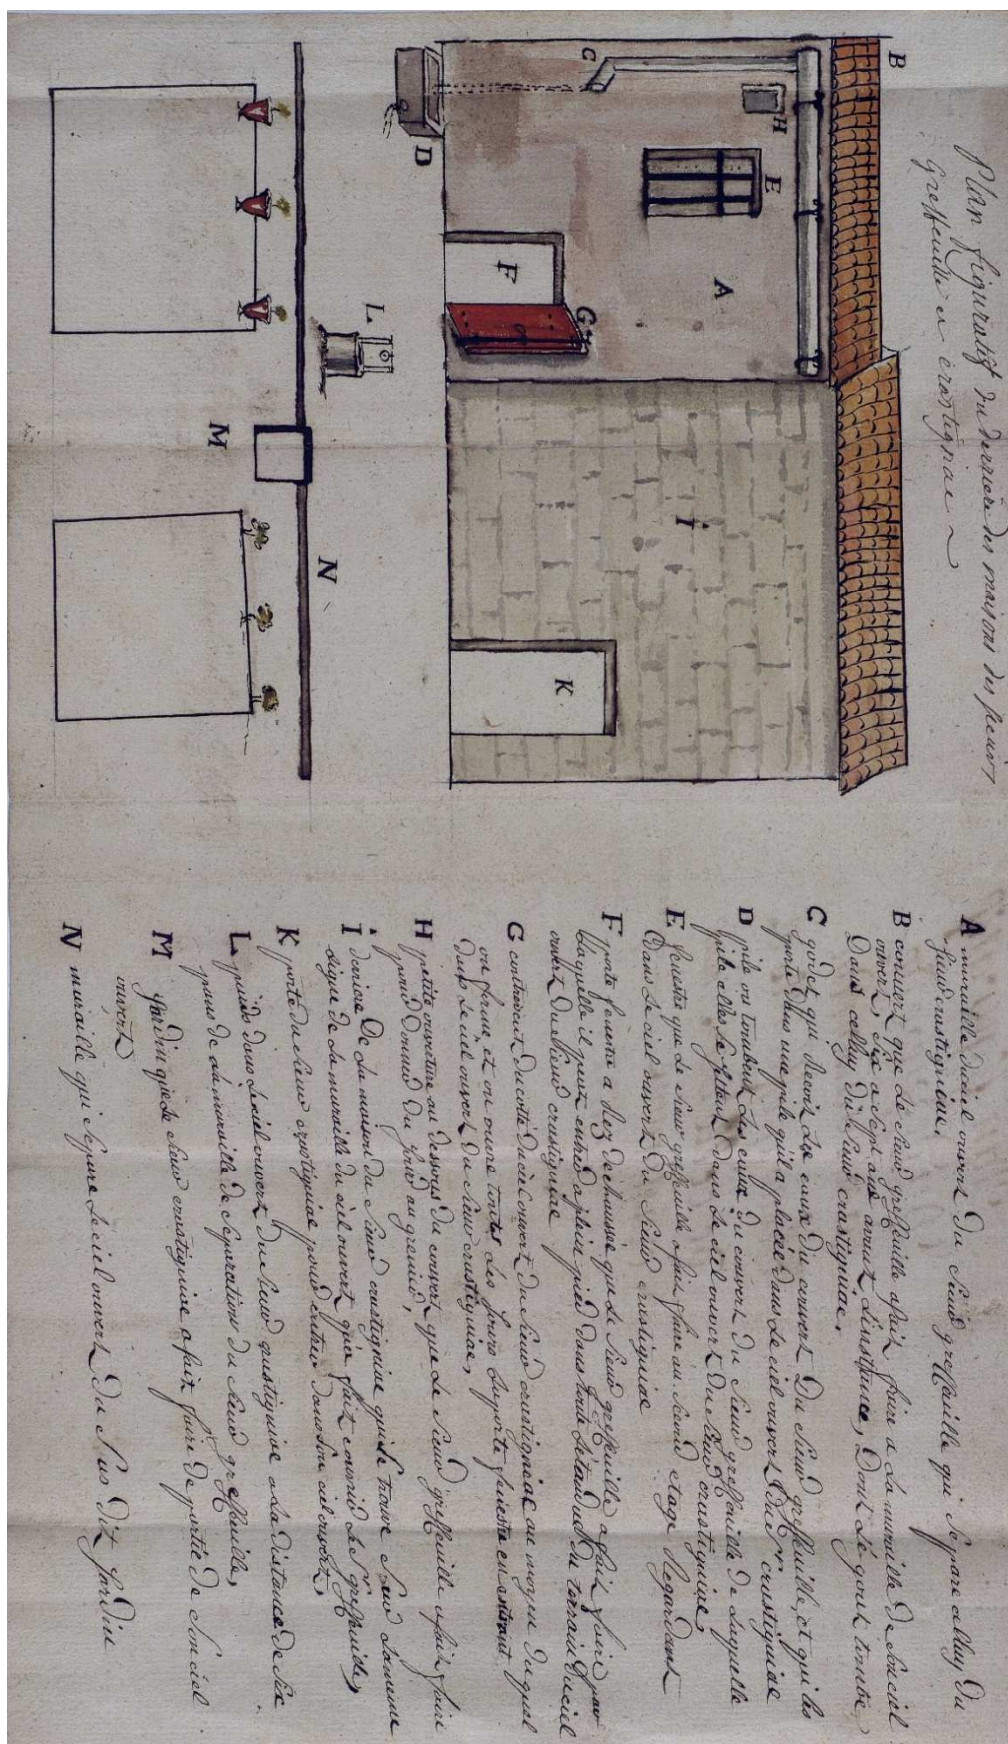 Plan figuratif du derrière des maisons des sieurs
greffeuille et crostigniac
B
H
C
E
A
D
F
G
i
K
L
M
N
A muraille du ciel ouvert du Sieur greffeuille qui Separe celluy du
Sieur crustigniac.
B couvert que le Sieur greffeuille a fait faire a La muraille de Son ciel
ouvert, Six a Sept ans avant L'instance, Dont Legout tombe
Dans celluy du Sieur crustigniac.
C godet qui Recoit Les eaux du couvert Du Sieur greffeuille, et qui les
porte Dans une pile qu'il a placée dans Le ciel ouvert Dud. Sr crustigniac
D pile ou tombent Les eaux du couvert du Sieur greffeuille de Laquelle
pile elles Se jettent dans Le ciel ouvert du Sieur crustigniac,
E fenestre que Le Sieur greffeuille a fait faire au Second etage Regardant
Dans Le ciel ouvert du Sieur crustigniac
F porte fenestre a Rez de chaussée que Le Sieur greffeuille a fait faire par
Laquelle il peut entrer a plain pied dans toute L'etandue du terrain du ciel
ouvert du Sieur crustigniac
G contrevent du cotté du ciel ouvert du Sieur crustigniac au moyen duquel
on ferme et on ouvre toutes Les jours La porte fenestre en entrant
dans Le ciel ouvert du Sieur crustigniac,
H petite ouverture au dessous du couvert que Le Sieur greffeuille a fait faire
pour donner du jour au grenier,
i derriere De La maison du Sieur crustigniac qui Se trouve Sur La meme
ligne de La muraille du ciel ouvert qu'a fait couvrir Le Sr greffeuille,
K porte du Sieur crustigniac pour entrer dans Son ciel ouvert,
L puids dans Le ciel ouvert du Sieur crustigniac a La distance de Six
pans de La muraille de Separation du Sieur greffeuille,
M jardin que le Sieur crustigniac a fait faire de partie de Son ciel
ouvert
N muraille qui Separe Le ciel ouvert du Sus dit jardin